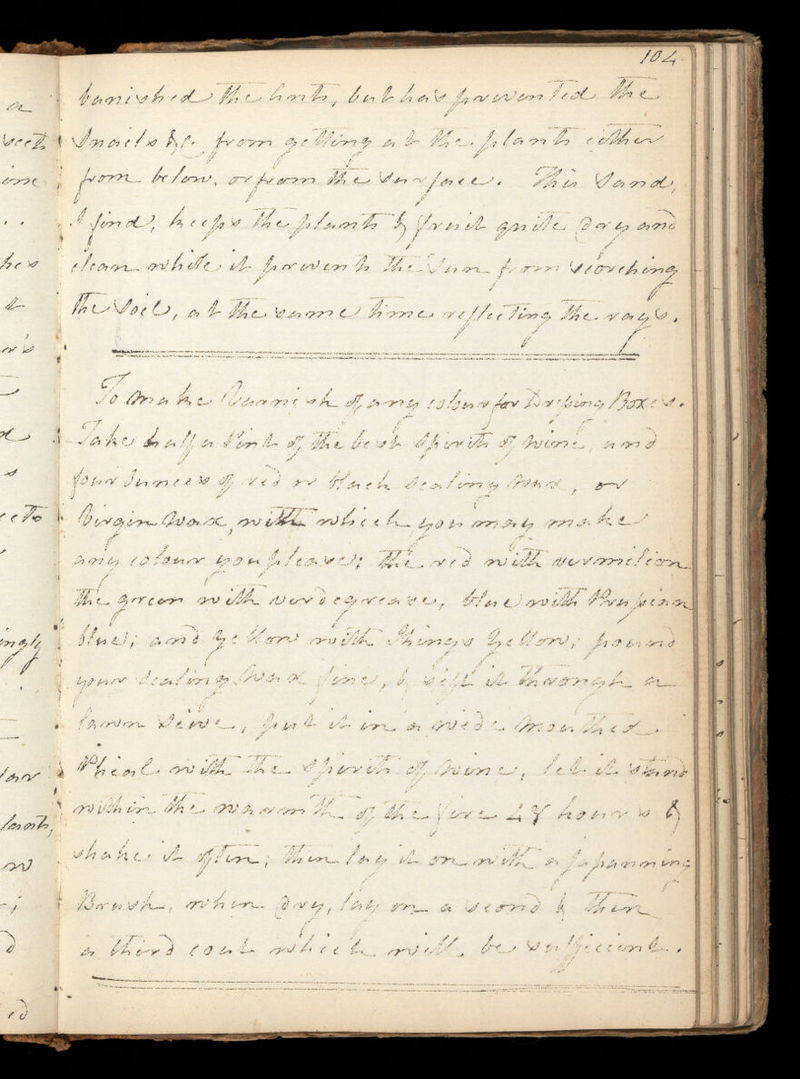 104
banished the Ants, but has prevented the
Snails &c. from getting at the plants either
from below, or from the surface. This Sand,
I find, keeps the plants & fruit quite dry and
clean while it prevents the Sun from scorching
the Soil, at the same time reflecting the rays.
To make Varnish of any colour for Dressing Boxes.
Take half a Pint of the best Spirits of Wine, and
four Ounces of red or black sealing Wax, or
Virgin Wax, with which you may make
any colour you please: the red with vermilion
the green with verdegrease, blue with Prussian
blue; and yellow with Kings Yellow; pound
your Sealing Wax fine, & sift it through a
lawn Seive, put it in a wide mouthed
Phial with the Spirits of Wine, let it stand
within the warmth of the fire 48 hours &
shake it often; then lay it on with a Japanning
Brush, when dry, lay on a second & then
a third coat which will be sufficient.
a
ine
hes
t
or's
d
s
ingly
lants,
w
d
ed